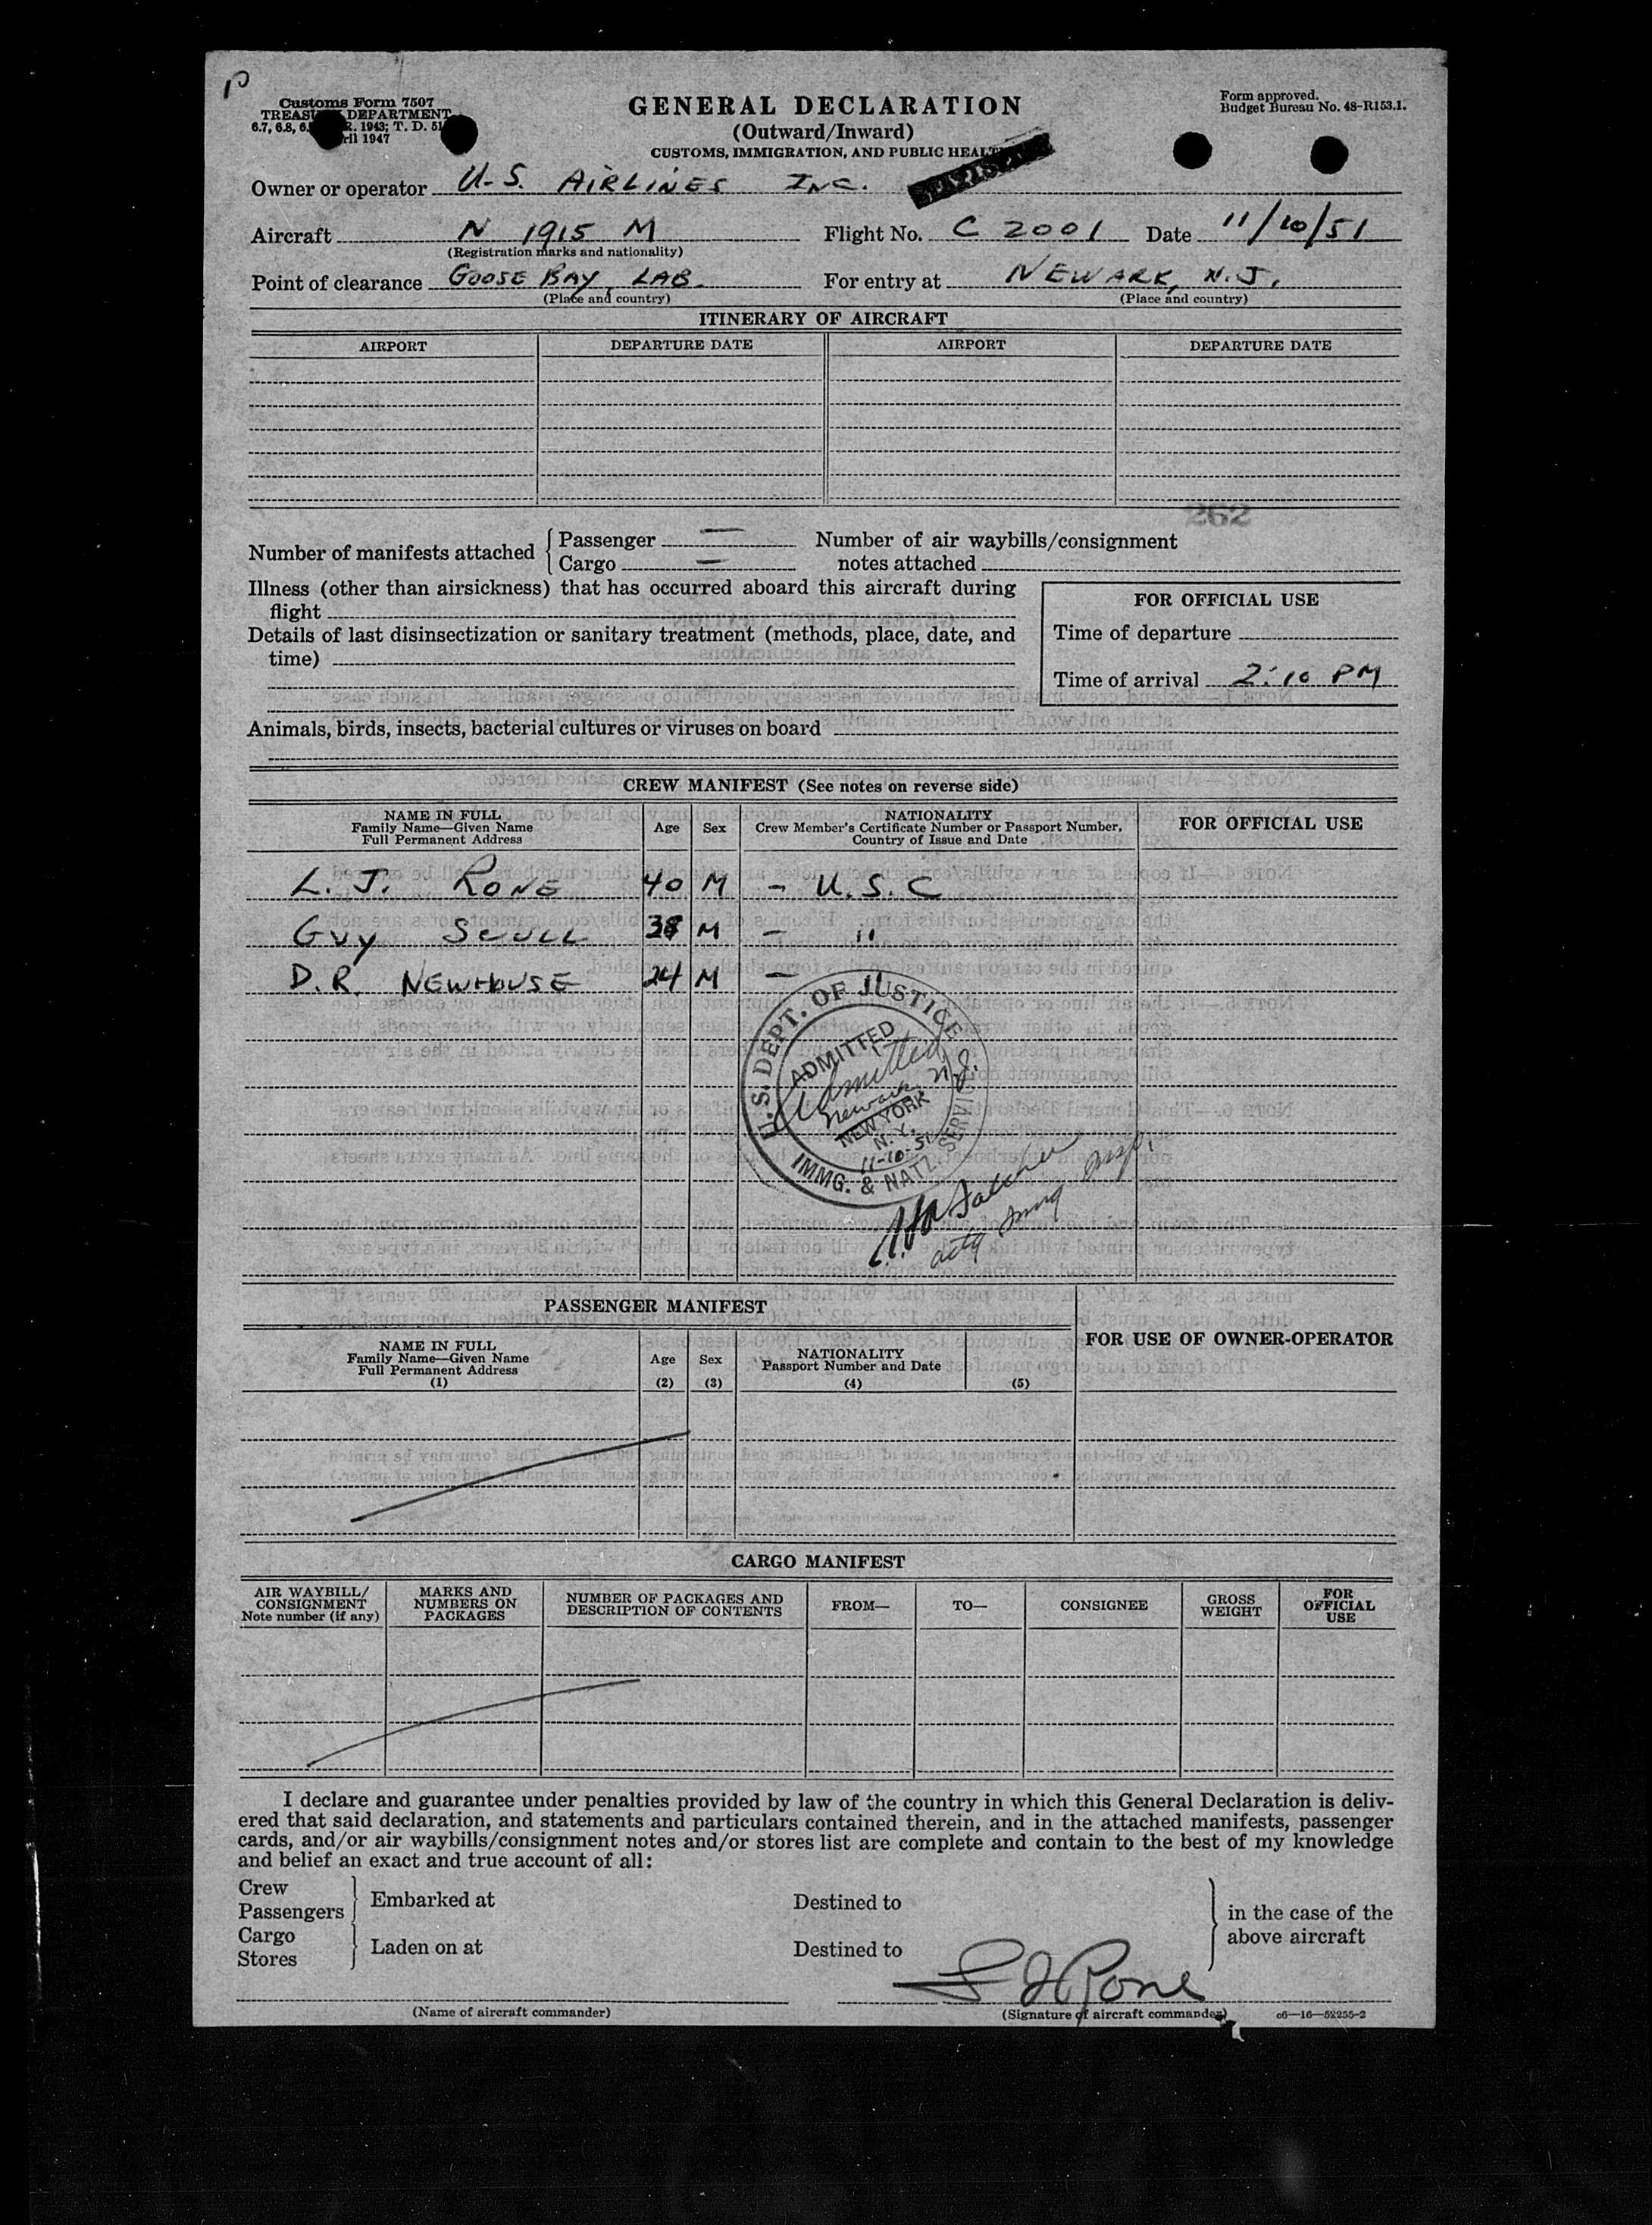 Customs Form 7507
TREASURY DEPARTMENT
1943; T. D.
1947
GENERAL DECLARATION
(Outward/Inward)
CUSTOMS, IMMIGRATION, AND PUBLIC HEALTH
Form approved.
Budget Bureau No. 48-R153.1.
Owner or operator U.S. AIRLINES INC.
Aircraft N 1915 M Flight No. C 2001 Date 11/10/51
(Registration marks and nationality)
Point of clearance GOOSE BAY, LAB. For entry at NEWARK, N.J.
(Place and country) (Place and country)
ITINERARY OF AIRCRAFT
AIRPORT DEPARTURE DATE AIRPORT DEPARTURE DATE
262
Number of manifests attached Passenger — Number of air waybills/consignment
Cargo — notes attached
Illness (other than airsickness) that has occurred aboard this aircraft during
flight
Details of last disinsectization or sanitary treatment (methods, place, date, and
time)
FOR OFFICIAL USE
Time of departure
Time of arrival 2:10 PM
Animals, birds, insects, bacterial cultures or viruses on board
CREW MANIFEST (See notes on reverse side)
NAME IN FULL
Family Name—Given Name
Full Permanent Address
Age Sex
NATIONALITY
Crew Member's Certificate Number or Passport Number,
Country of Issue and Date
FOR OFFICIAL USE
L. J. RONE 40 M - U.S.C
GUY SCULL M - "
D.R. NEWHOUSE 24 M -
U.S. DEPT. OF JUSTICE
ADMITTED
Admitted
Newark, N.J.
NEW YORK
N.Y.
11-10-51
IMMG. & NATZ. SERVICE
actg Immg Insp.
PASSENGER MANIFEST
NAME IN FULL
Family Name—Given Name
Full Permanent Address
(1)
Age
(2)
Sex
(3)
NATIONALITY
Passport Number and Date
(4) (5)
FOR USE OF OWNER-OPERATOR
CARGO MANIFEST
AIR WAYBILL/
CONSIGNMENT
Note number (if any)
MARKS AND
NUMBERS ON
PACKAGES
NUMBER OF PACKAGES AND
DESCRIPTION OF CONTENTS
FROM— TO— CONSIGNEE
GROSS
WEIGHT
FOR
OFFICIAL
USE
I declare and guarantee under penalties provided by law of the country in which this General Declaration is deliv-
ered that said declaration, and statements and particulars contained therein, and in the attached manifests, passenger
cards, and/or air waybills/consignment notes and/or stores list are complete and contain to the best of my knowledge
and belief an exact and true account of all:
Crew
Passengers
Embarked at Destined to
Cargo
Stores
Laden on at Destined to
in the case of the
above aircraft
L J Rone
(Name of aircraft commander) (Signature of aircraft commander) c6—16—52255-2